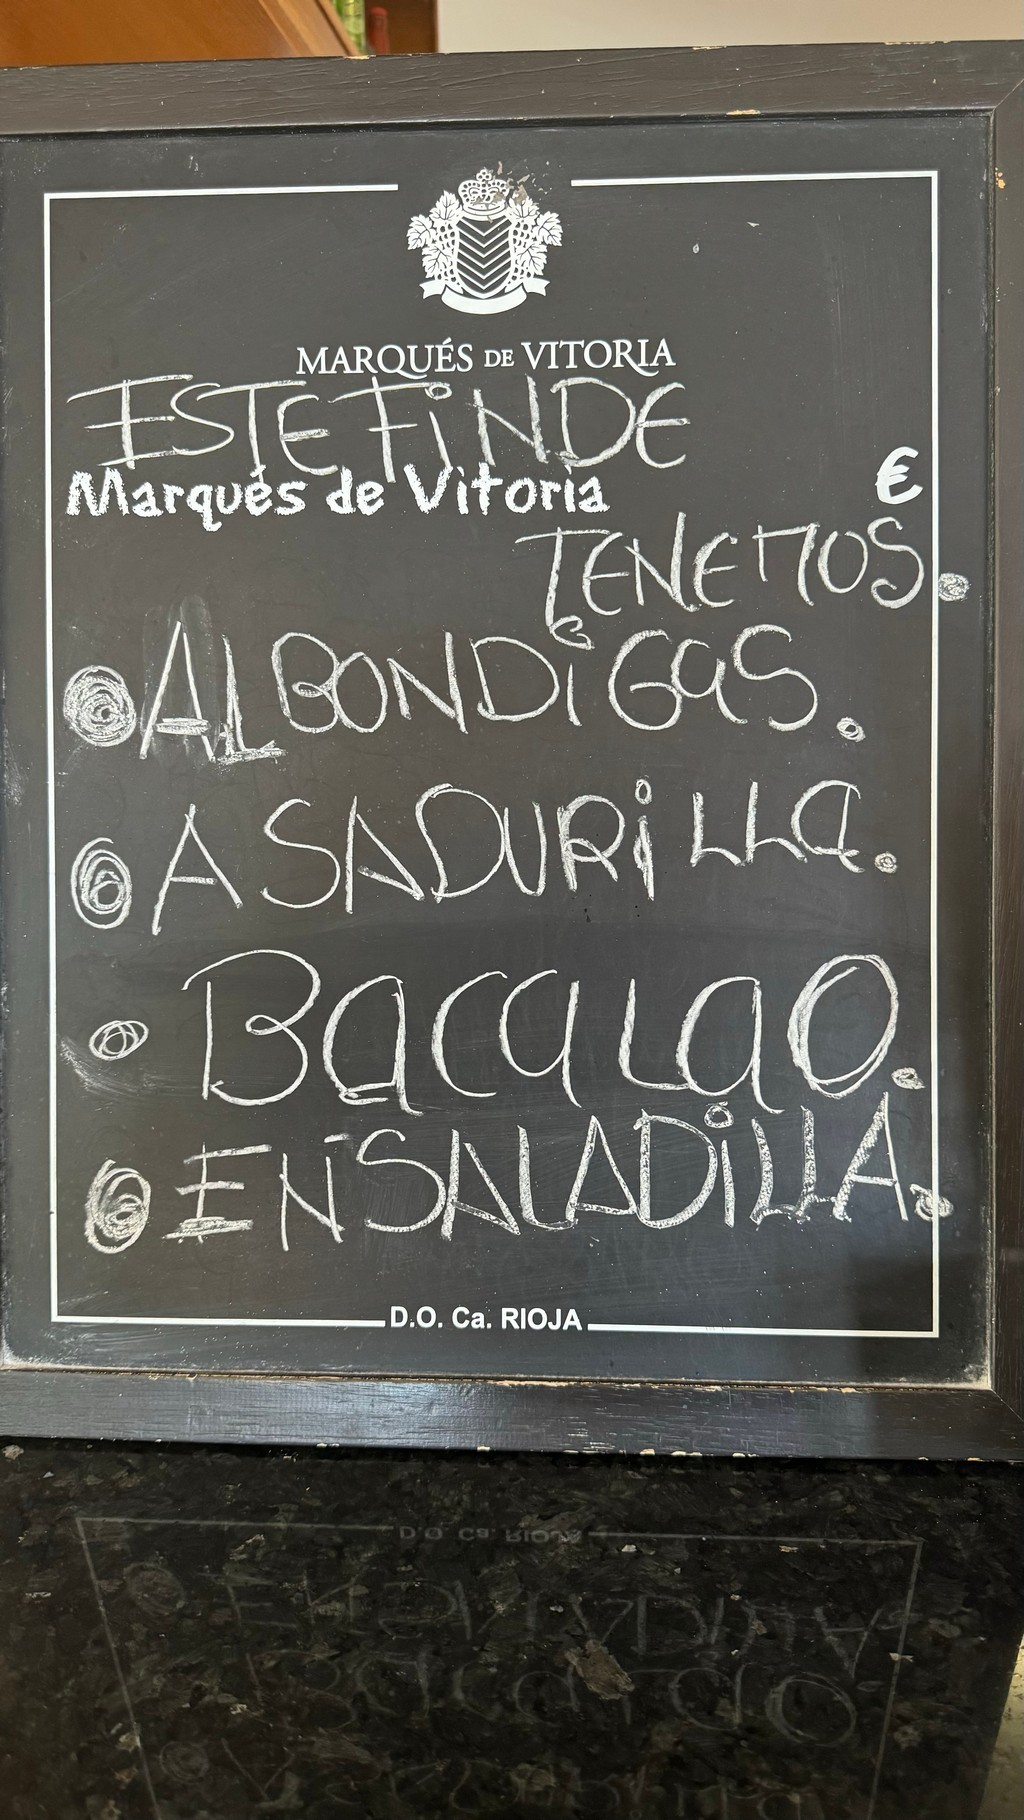 MARQUÉS DE VITORIA
ESTE FiNDE
Marqués de Vitoria €
TENEMOS.
ALBONDiGaS.
ASADURiLLa.
BacaLaO.
ENSALADiLLA.
D.O. Ca. RIOJA